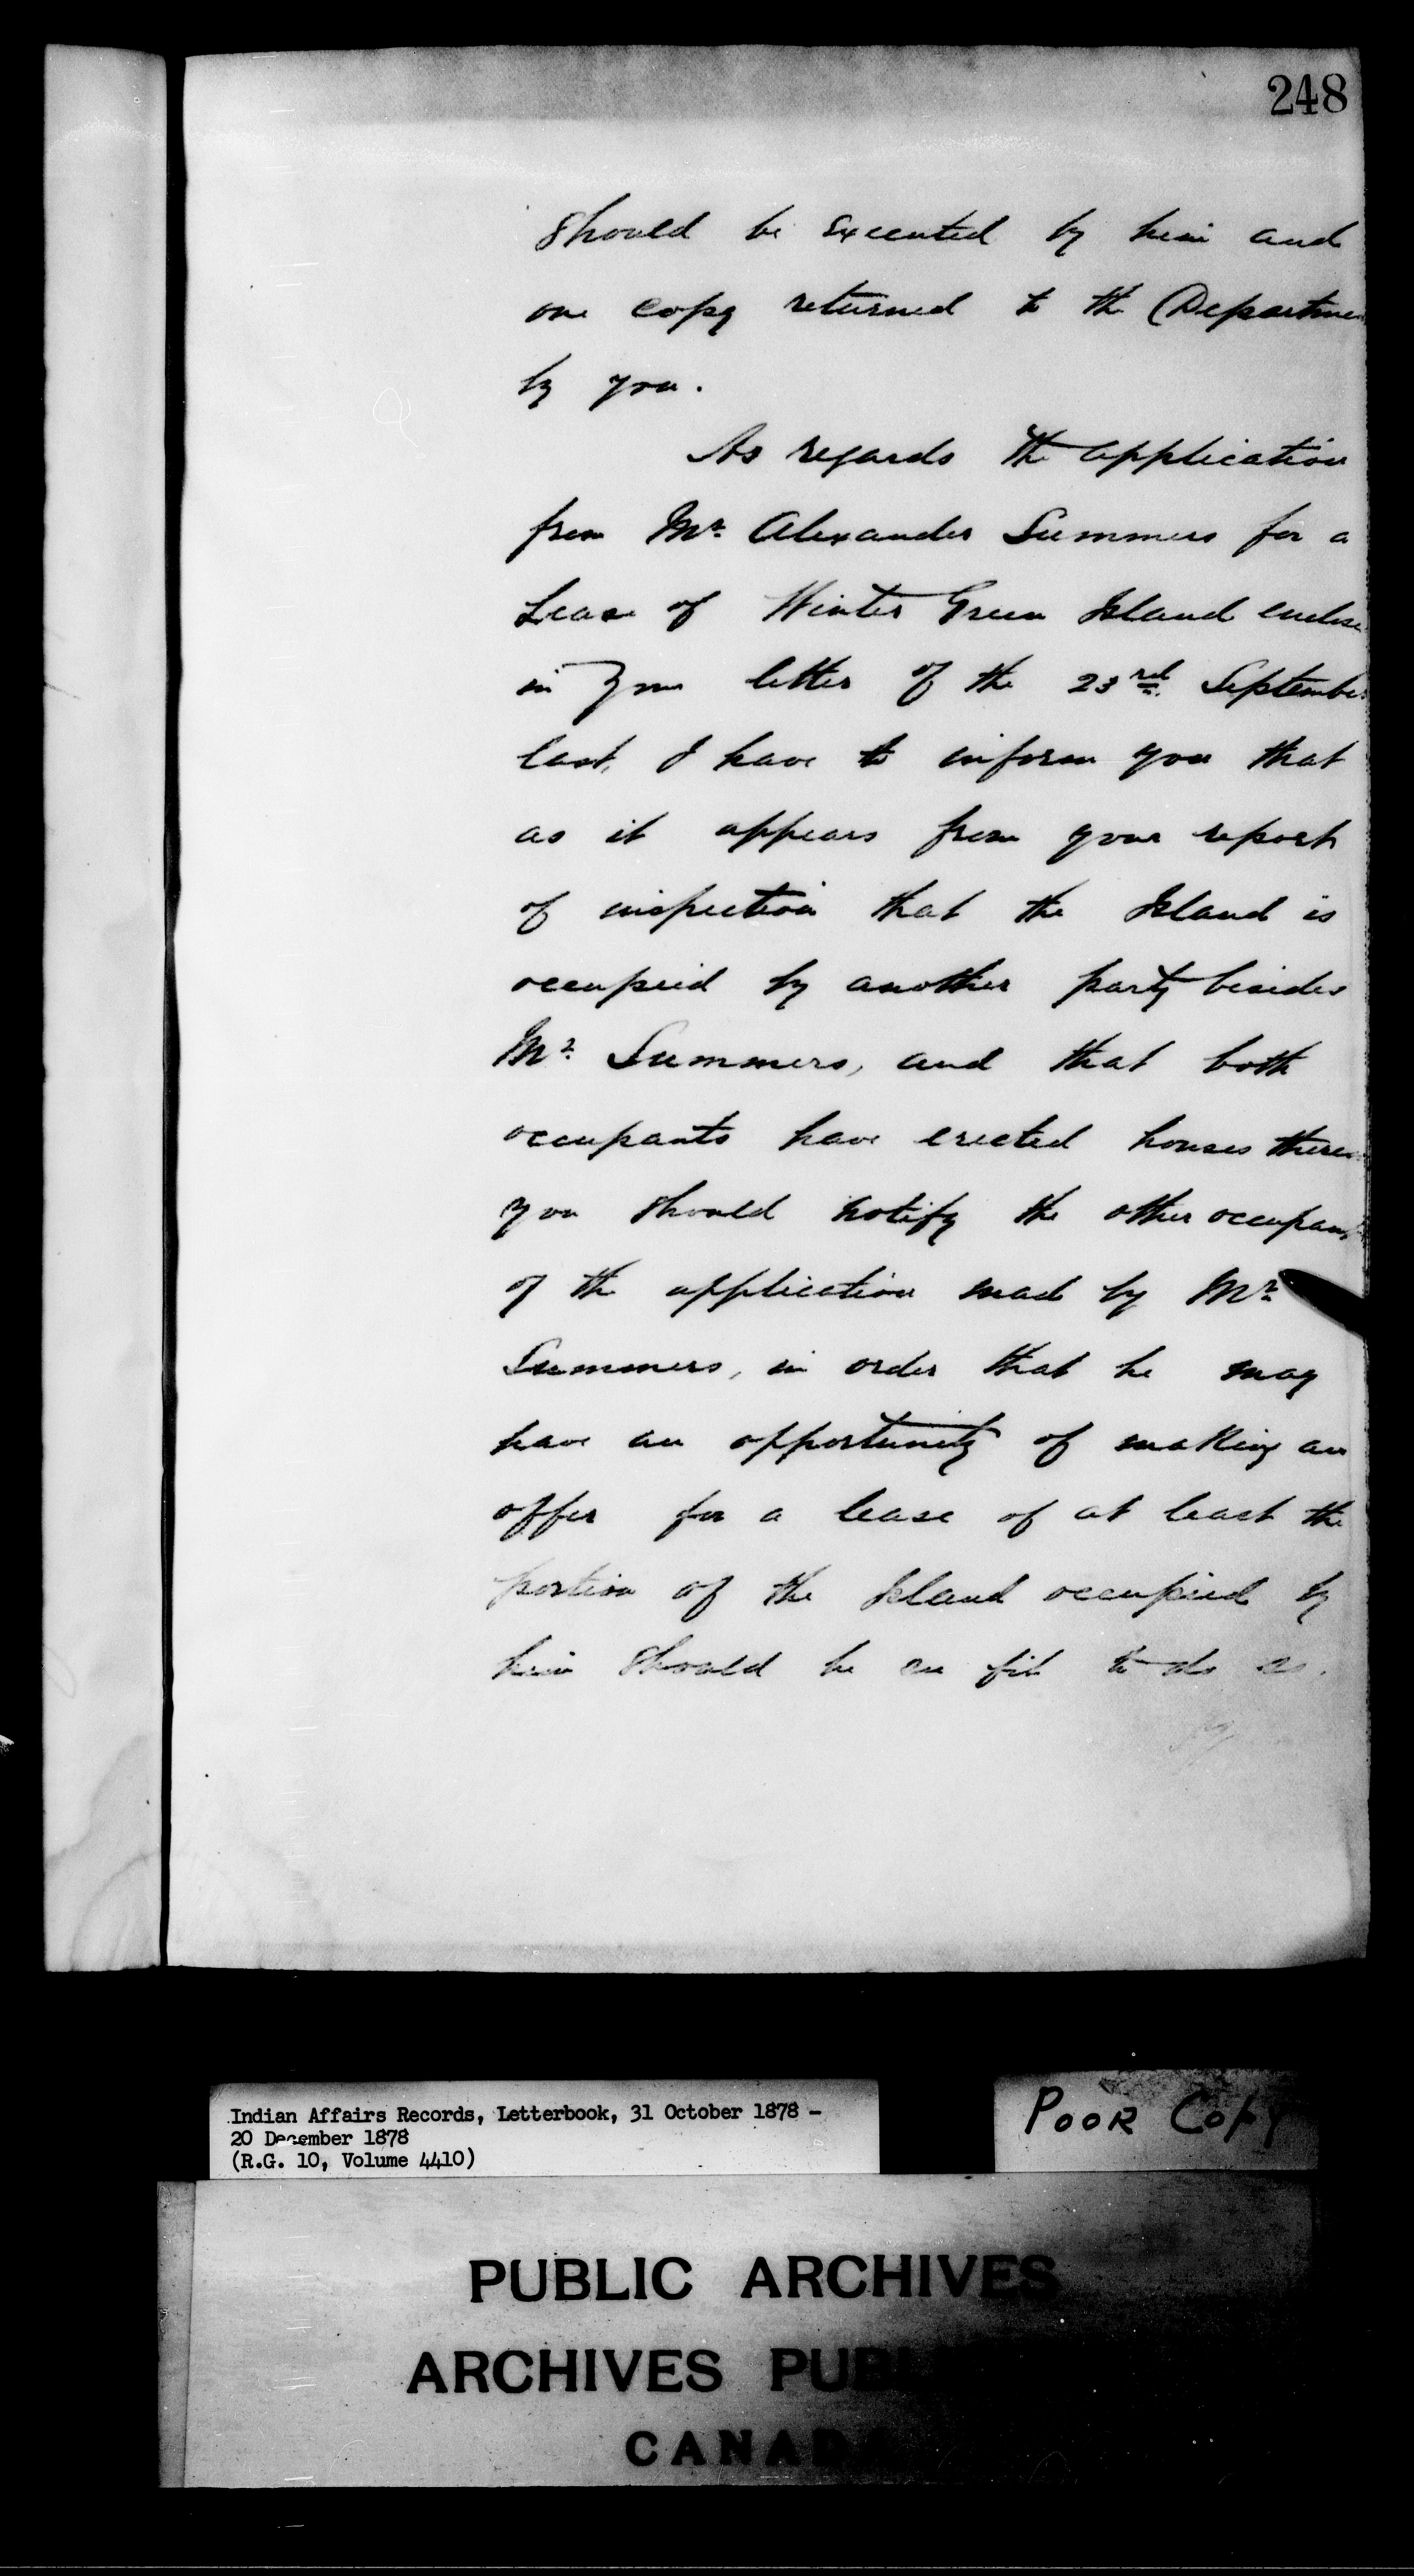 248
should be executed by him and
one copy returned to the Departmen
by you.
As regards the application
from Mr. Alexander Summers for a
Lease of Winter Green Island enclose
in your letter of the 23rd. September
last, I have to inform you that
as it appears from your report
of inspection that the Island is
occupied by another party besides
Mr. Summers, and that both
occupants have erected houses there
you should notify the other occupan
of the application made by Mr.
Summers, in order that he may
have an opportunity of making an
offer for a lease of at least the
portion of the Island occupied by
him should he see fit to do so.
Indian Affairs Records, Letterbook, 31 October 1878 -
20 December 1878
(R.G. 10, Volume 4410)
POOR COPY
PUBLIC ARCHIVES
ARCHIVES PUBL
CANADA